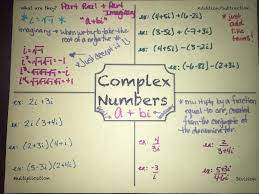 what are they? Part Real + Part
Imaginary
"a+bi"
* i = √-1 *
imaginary → when you take the
root of a negative
i = √-1
Complex
Numbers
a + bi
Addition/Subtraction
ex: (4+5i)+(6-2i)
ex: (3-5i)+(-7+3i)
ex: (4+5i)-(3-2i)
ex: (-6-8i)-(2+3i)
* just
add
like
terms!
ex: 2i · 3i
ex: 2i(3+4i)
ex: (2+3i)(4+i)
ex: (5-3i)(2+4i)
Multiplication
* multiply by a fraction
equal to one, created
from the conjugate of
the denominator
4/3i
2/3+4i
-3/i
5+3i/4-6i
Division